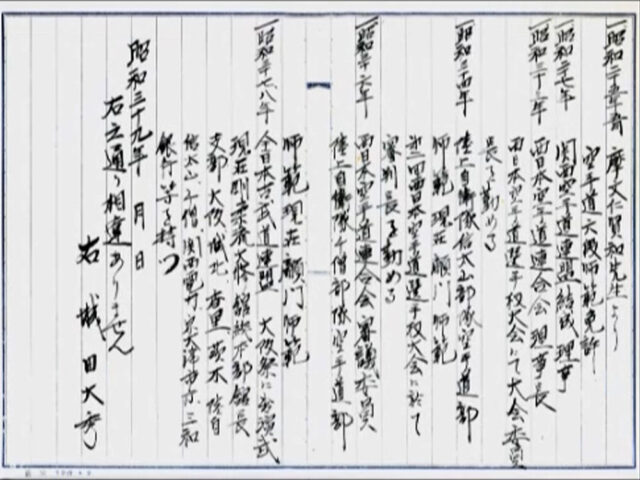 一昭和二十年 摩文仁賢和先生より
空手道大阪師範免許
一昭和二七年 関西空手道連盟結成理事
一昭和三十三年 西日本空手道連合会理事長
西日本空手道選手权大会にて大会委員
長を勤める
一昭和三十四年 陸上自衛隊信太山部隊空手道部
師範 現在顧門師範
第二回西日本空手道選手权大会に於て
審判長を勤める
一昭和三十六年 西日本空手道連合会審議委員
陸上自衛隊千僧部隊空手道部
師範 現在顧門師範
一昭和三十七、八年 全日本古武道連盟 大阪祭に出演武
現在剛柔流大 館 下部館長
支部 大阪城北 香里 茨木 陸自
信太山 千僧 関西電力 泉大津市 三和
銀行等を持つ
昭和三十九年 月 日
右之通り相違ありません
右 城田大